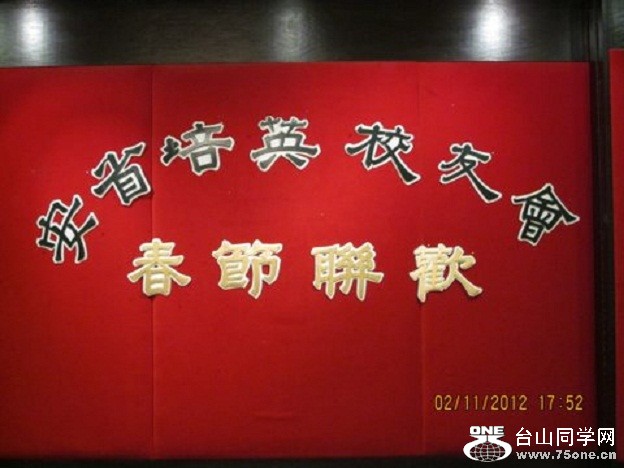 安省培英校友會
春節聯歡
02/11/2012 17:52
ONE 台山同学网
www.75one.cn